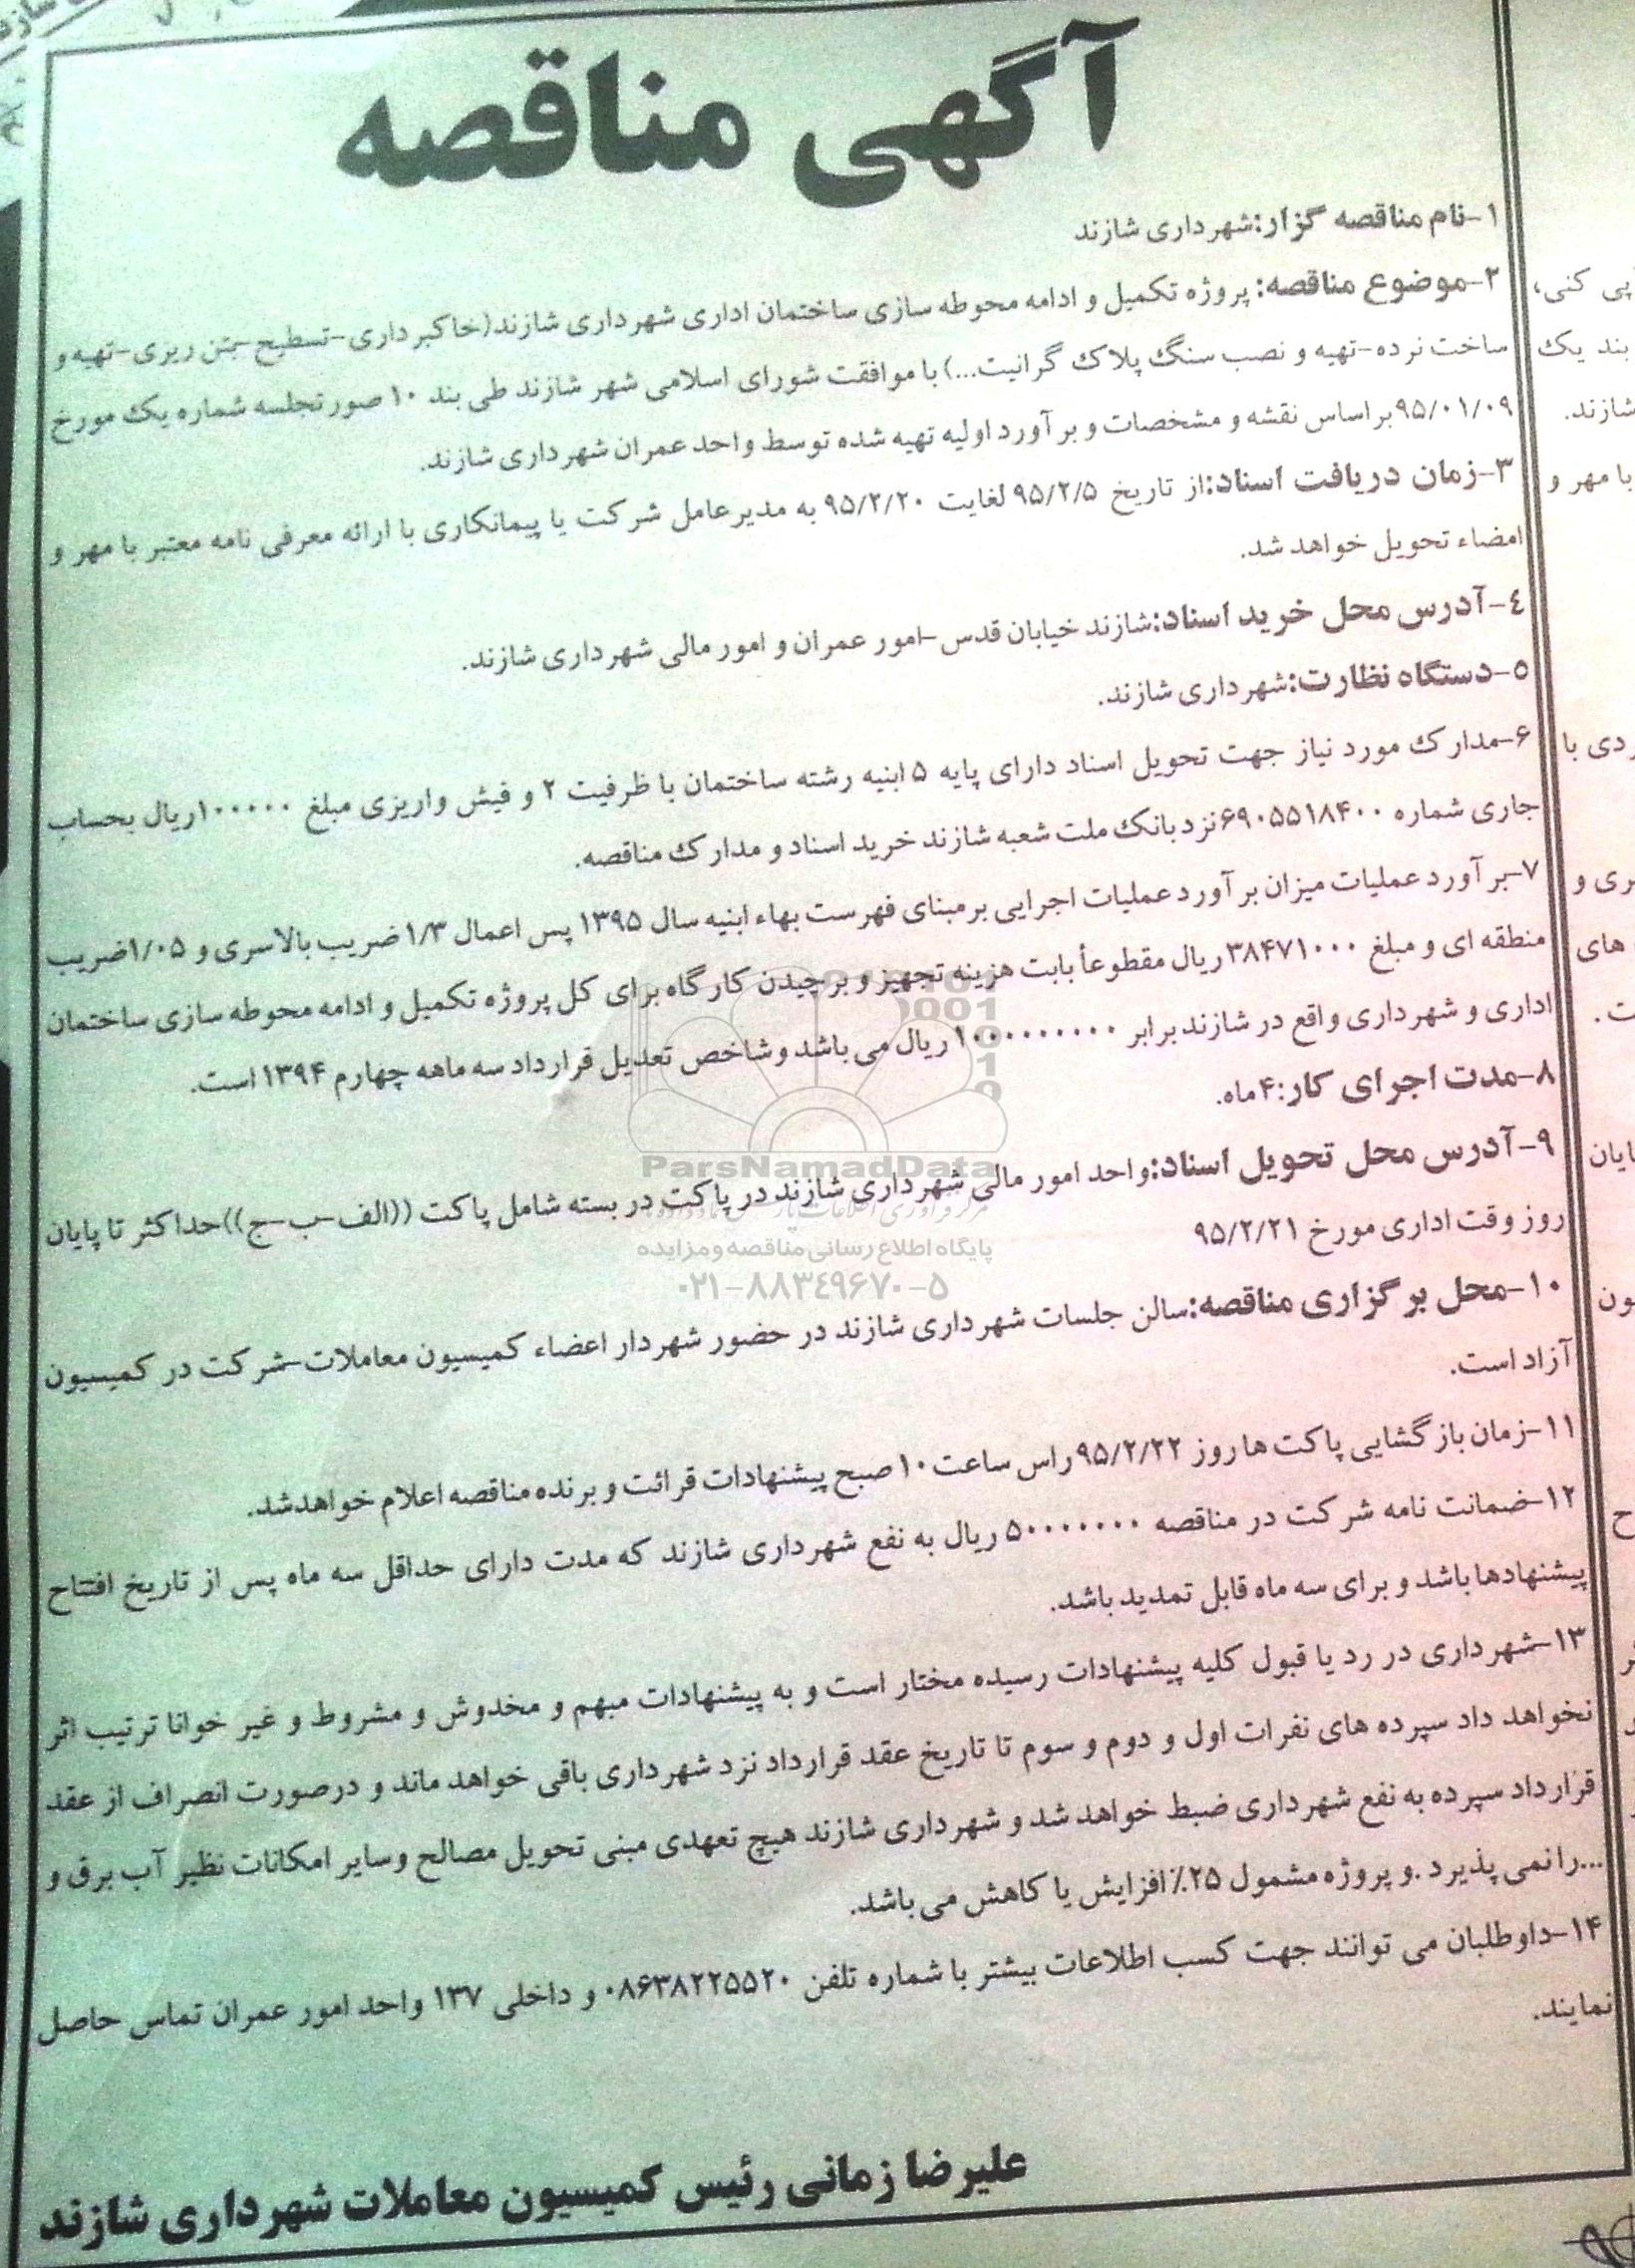 آگهی مناقصه
۱-نام مناقصه گزار:شهرداری شازند
۲-موضوع مناقصه: پروژه تکمیل و ادامه محوطه سازی ساختمان اداری شهرداری شازند(خاکبرداری-تسطیح-بتن ریزی-تهیه و
ساخت نرده-تهیه و نصب سنگ پلاک گرانیت...) با موافقت شورای اسلامی شهر شازند طی بند ۱۰ صورتجلسه شماره یک مورخ
۹۵/۰۱/۰۹بر اساس نقشه و مشخصات و برآورد اولیه تهیه شده توسط واحد عمران شهرداری شازند.
۳-زمان دریافت اسناد:از تاریخ ۹۵/۲/۵ لغایت ۹۵/۲/۲۰ به مدیرعامل شرکت یا پیمانکاری با ارائه معرفی نامه معتبر با مهر و
امضاء تحویل خواهد شد.
٤-آدرس محل خرید اسناد:شازند خیابان قدس-امور عمران و امور مالی شهرداری شازند.
۵-دستگاه نظارت:شهرداری شازند.
۶-مدارک مورد نیاز جهت تحویل اسناد دارای پایه ۵ ابنیه رشته ساختمان با ظرفیت ۲ و فیش واریزی مبلغ ۱۰۰۰۰۰ریال بحساب
جاری شماره ۶۹۰۵۵۱۸۴۰۰نزد بانک ملت شعبه شازند خرید اسناد و مدارک مناقصه.
۷-برآورد عملیات میزان برآورد عملیات اجرایی برمبنای فهرست بهاء ابنیه سال ۱۳۹۵ پس اعمال ۱/۳ ضریب بالاسری و ۱/۰۵ضریب
منطقه ای و مبلغ ۳۸۴۷۱۰۰۰ریال مقطوعأ بابت هزینه تجهیز و برچیدن کارگاه برای کل پروژه تکمیل و ادامه محوطه سازی ساختمان
اداری و شهرداری واقع در شازند برابر ۱۰۰۰۰۰۰۰۰۰ ریال می باشد و شاخص تعدیل قرارداد سه ماهه چهارم ۱۳۹۴ است.
۸-مدت اجرای کار:۴ماه.
۹-آدرس محل تحویل اسناد:واحد امور مالی شهرداری شازند در پاکت در بسته شامل پاکت ((الف-ب-ج))حداکثر تا پایان
روز وقت اداری مورخ ۹۵/۲/۲۱
۱۰-محل برگزاری مناقصه:سالن جلسات شهرداری شازند در حضور شهردار اعضاء کمیسیون معاملات-شرکت در کمیسیون
آزاد است.
۱۱-زمان بازگشایی پاکت ها روز ۹۵/۲/۲۲راس ساعت ۱۰ صبح پیشنهادات قرائت و برنده مناقصه اعلام خواهدشد.
۱۲-ضمانت نامه شرکت در مناقصه ۵۰۰۰۰۰۰۰ ریال به نفع شهرداری شازند که مدت دارای حداقل سه ماه پس از تاریخ افتتاح
پیشنهادها باشد و برای سه ماه قابل تمدید باشد.
۱۳-شهرداری در رد یا قبول کلیه پیشنهادات رسیده مختار است و به پیشنهادات مبهم و مخدوش و مشروط و غیر خوانا ترتیب اثر
نخواهد داد سپرده های نفرات اول و دوم و سوم تا تاریخ عقد قرارداد نزد شهرداری باقی خواهد ماند و درصورت انصراف از عقد
قرارداد سپرده به نفع شهرداری ضبط خواهد شد و شهرداری شازند هیچ تعهدی مبنی تحویل مصالح وسایر امکانات نظیر آب برق و
...را نمی پذیرد .و پروژه مشمول ۲۵٪ افزایش یا کاهش می باشد.
۱۴-داوطلبان می توانند جهت کسب اطلاعات بیشتر با شماره تلفن ۰۸۶۳۸۲۲۵۵۲۰ و داخلی ۱۳۷ واحد امور عمران تماس حاصل
نمایند.
علیرضا زمانی رئیس کمیسیون معاملات شهرداری شازند
پی کنی،
بند یک
شازند.
با مهر و
ParsNamadData
پایگاه اطلاع رسانی مناقصه و مزایده
۰۲۱-۸۸۳٤۹۶۷۰-۵